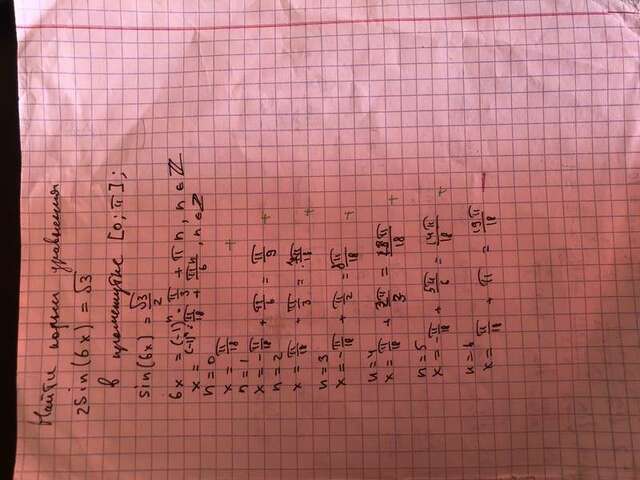 Найти корни уравнения
2sin(6x) = √3
в промежутке [0; π];
sin(6x) = √3/2
6x = (-1)ⁿ · π/3 + πn, n ∈ ℤ
x = (-1)ⁿ · π/18 + πn/6, n ∈ ℤ
n = 0
x = π/18 +
n = 1
x = -π/18 + π/6 = π/9 +
n = 2
x = π/18 + π/3 = 7π/18 +
n = 3
x = -π/18 + π/2 = 8π/18 +
n = 4
x = π/18 + 2π/3 = 13π/18 +
n = 5
x = -π/18 + 5π/6 = 14π/18 +
n = 6
x = π/18 + π = 19π/18 —